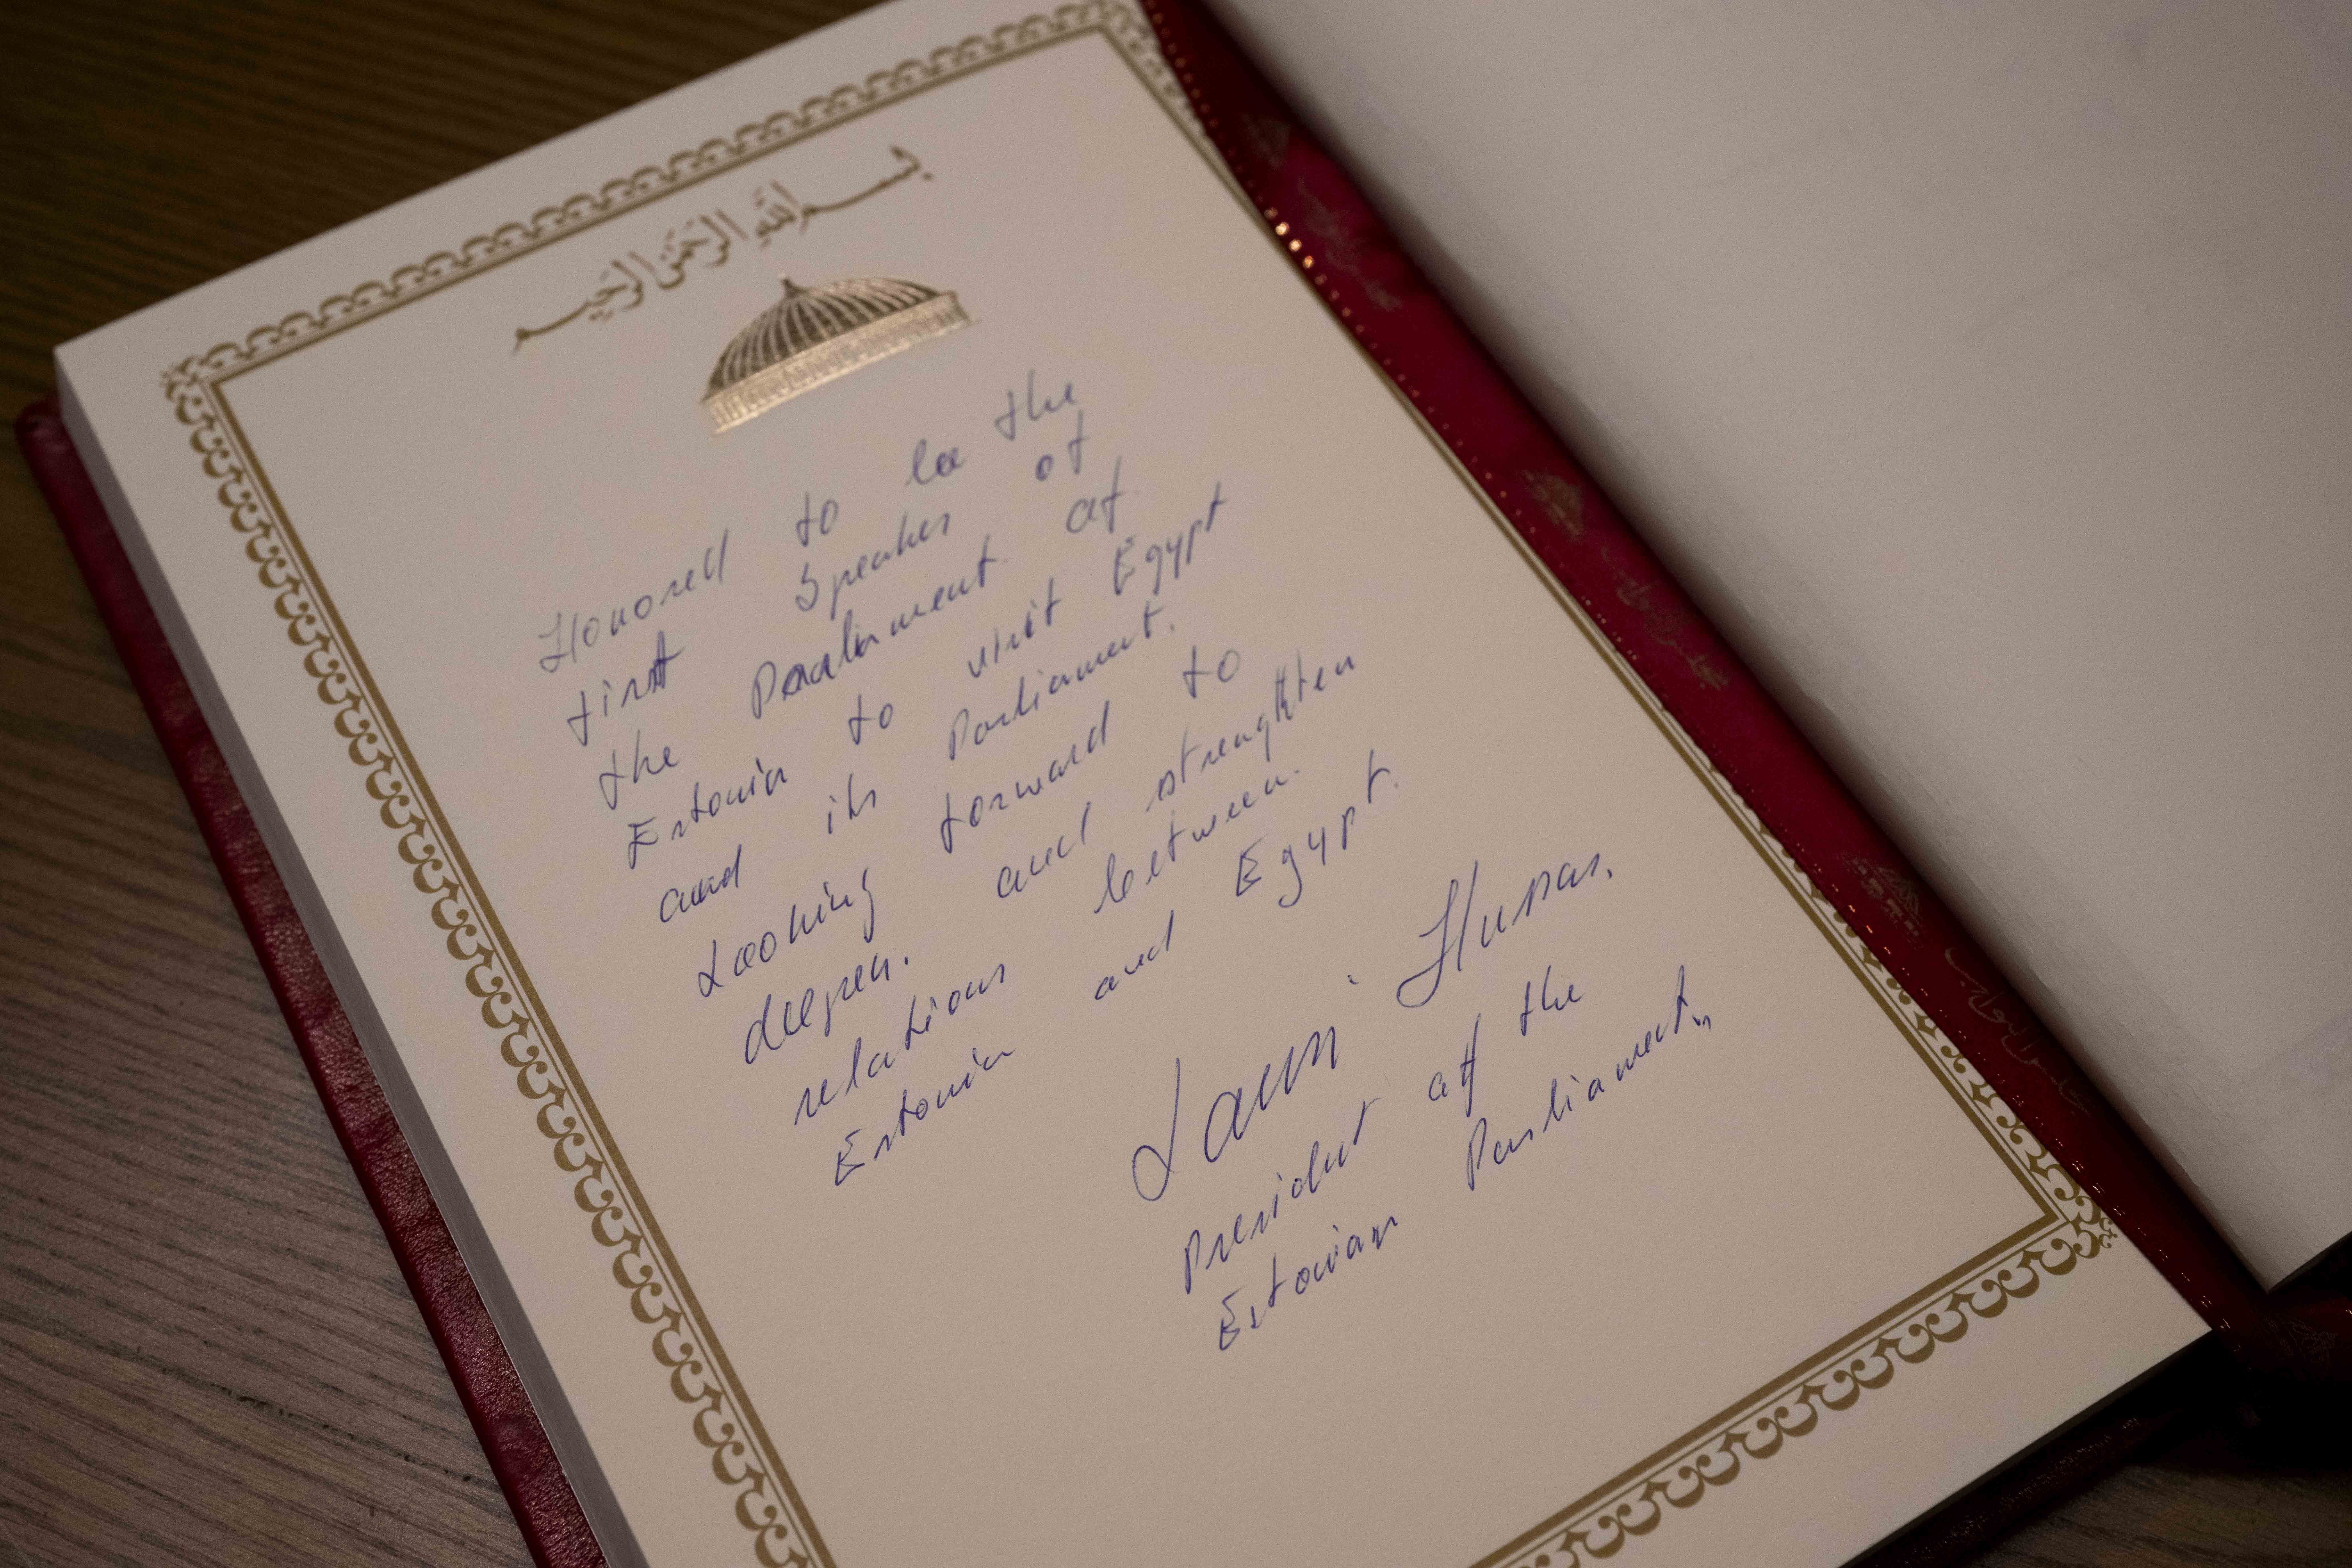 بسم الله الرحمن الرحيم
Honored to be the
first Speaker of
the Parliment of
Estonia to visit Egypt
and its Parliament.
Looking forward to
deepen and strenghten
relations between
Estonia and Egypt.
Lauri Hussar.
President of the
Estonian Parliament